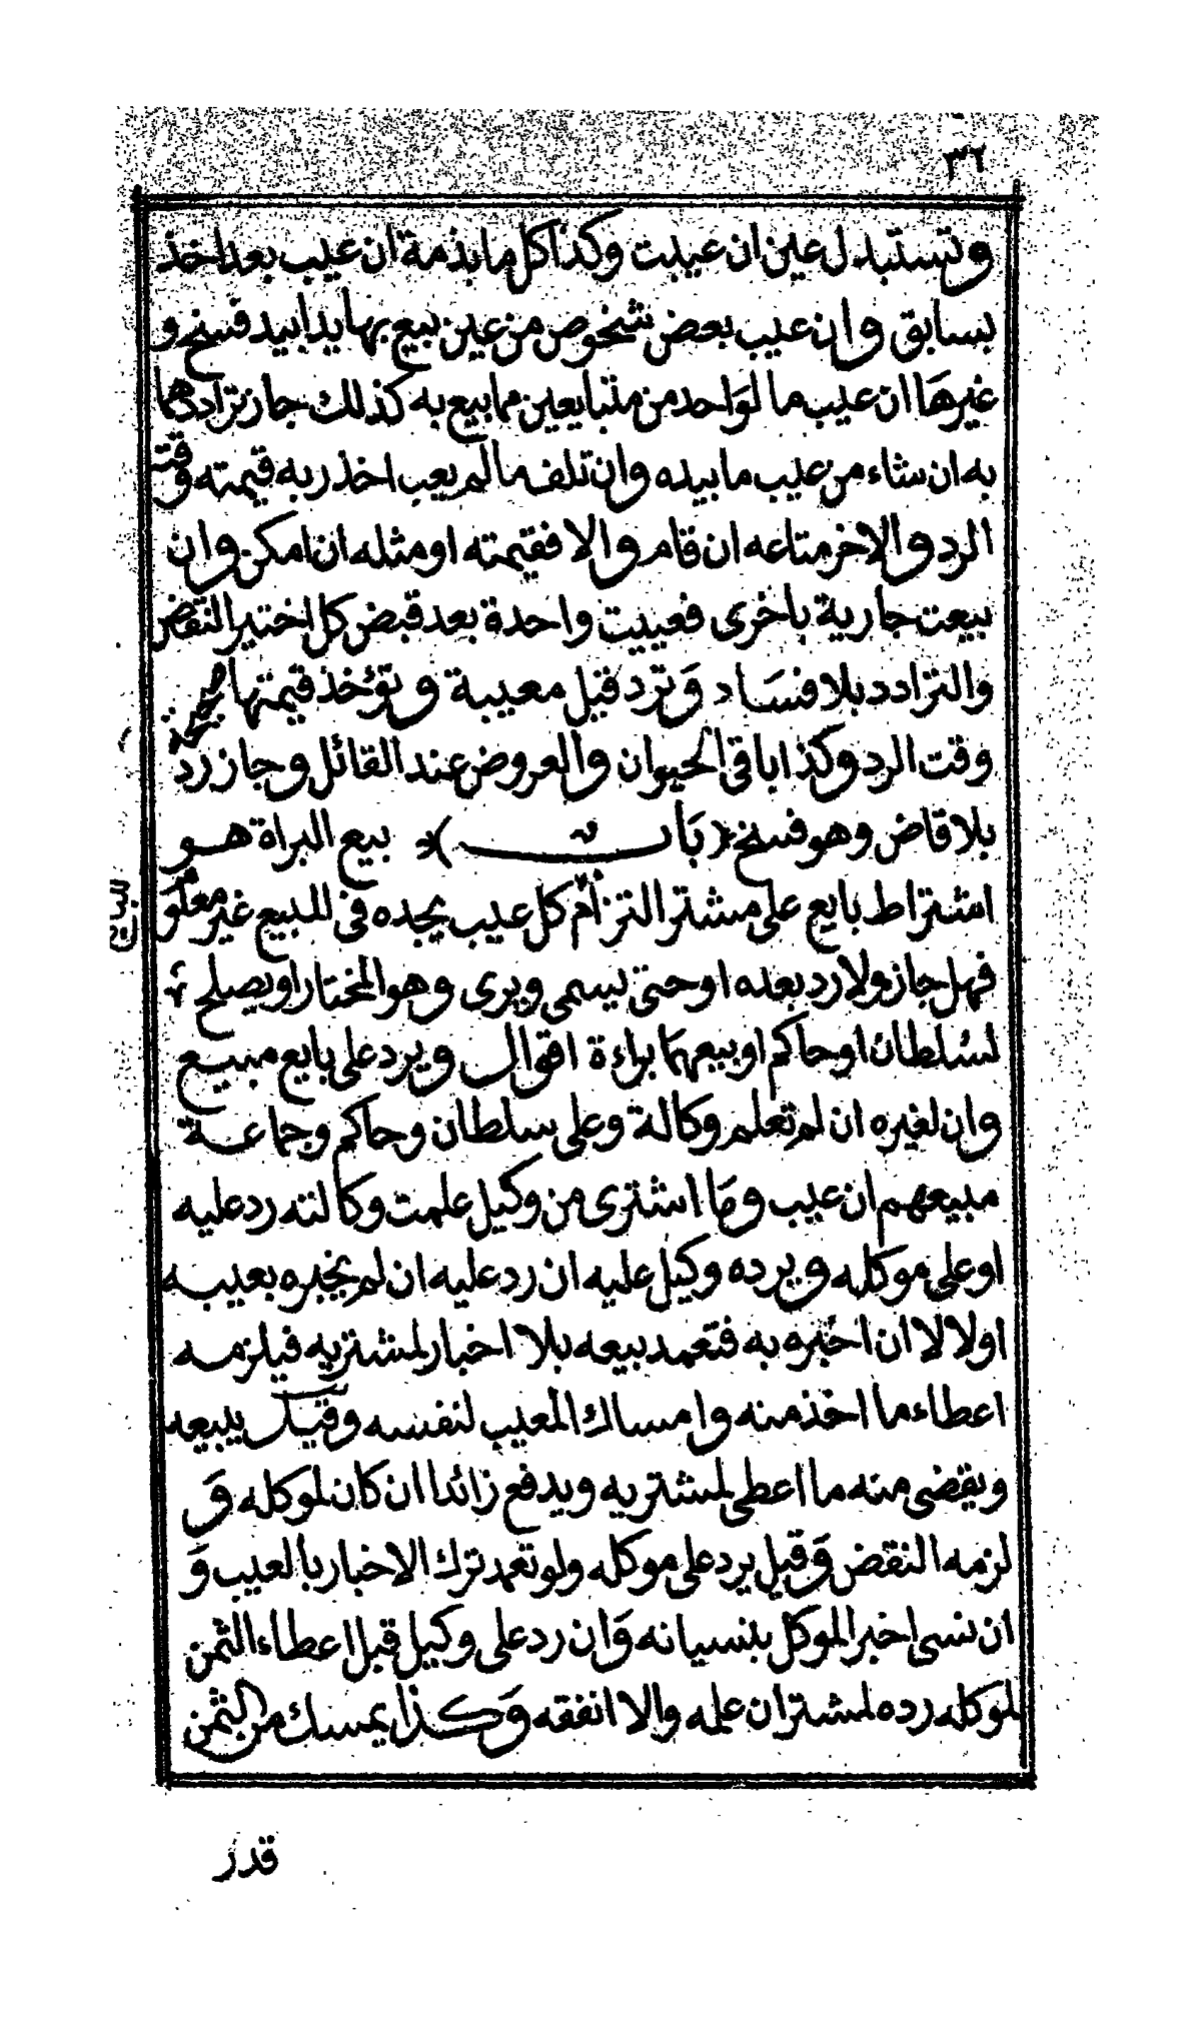 ٣٦
وتستبدل عين ان عيبت وكذا كل ما بذمة ان عيب بعد اخذ
بسابق وان عيب بعض شخوص من عين بيع بها يدا بيد فسخ و
غيرها ان عيب ما لواحد من متبايعين مما بيع به كذلك جاز ترادهما
به ان شاء من عيب ما بيده وان تلف ما لم يعب اخذ ربه قيمته وقت
الرد والاخر متاعه ان قام والا فقيمته او مثله ان امكن وان
بيعت جارية باخرى فعيبت واحدة بعد قبض كل اختير النقض
والترادد بلا فساد وترد قيل معيبة وتؤخذ قيمتها صحيحة
وقت الرد وكذا باقى الحيوان والعروض عند القائل وجاز رد
بلا قاض وهو فسخ (باب) بيع البراة هو
اشتراط بايع على مشتر التزام كل عيب يجده فى المبيع غير معلوم
فهل جاز ولا رد بعده او حتى يسمى ويرى وهو المختار او يصلح
لسلطان او حاكم او بيعهما براءة اقوال ويرد على بايع مبيع
وان لغيره ان لم تعلم وكالة وعلى سلطان وحاكم وجماعة
مبيعهم ان عيب وما اشترى من وكيل علمت وكالته رد عليه
او على موكله ويرده وكيل عليه ان رد عليه ان لم يخبره بعيبه
اولا لا ان اخبره به فتعمد بيعه بلا اخبار لمشتريه فيلزمه
اعطاء ما اخذ منه وامساك المعيب لنفسه وقيل يبيعه
ويقضى منه ما اعطى لمشتريه ويدفع زائدا ان كان لموكله و
لزمه النقض وقيل يرد على موكله ولو تعمد ترك الاخبار بالعيب و
ان نسى اخبر الموكل بنسيانه وان رد على وكيل قبل اعطاء الثمن
لموكله رده لمشتر ان علمه والا انفقه وكذا يمسك من الثمن
قدر